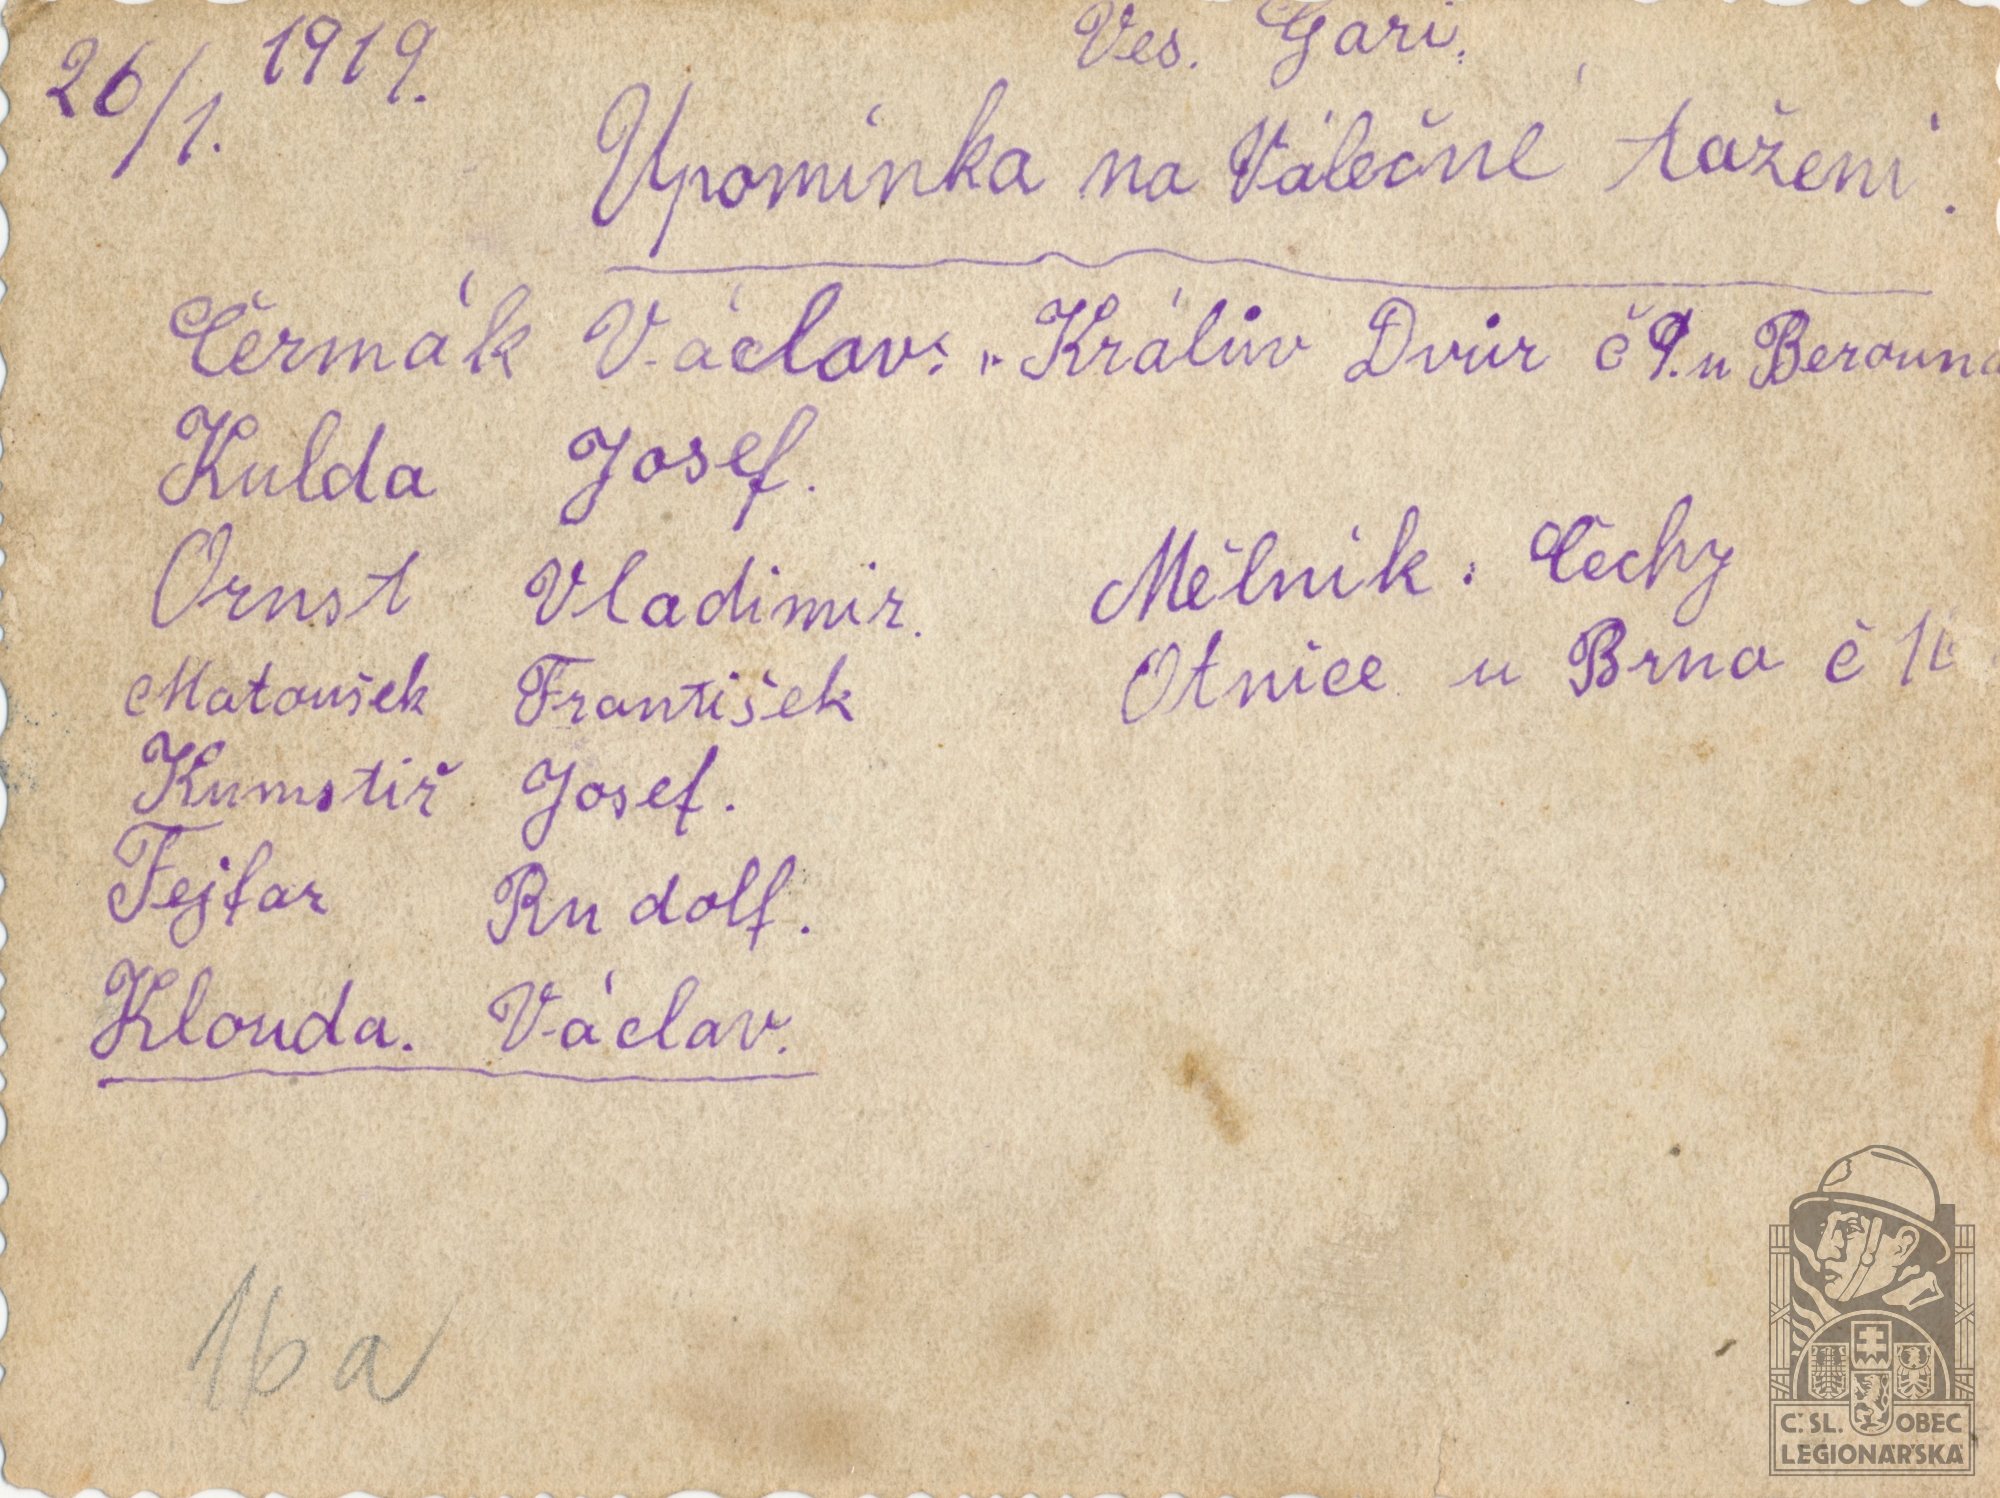 26/1. 1919.
Ves. Gari.
Upomínka na Válečné tažení.
Čermák Václav: „ Králův Dvůr č 9. u Berouna
Kulda Josef.
Ornst Vladimir. Mělník. Čechy
Matoušek František Otnice u Brna č
Kumstiř Josef.
Fejfar Rudolf.
Klouda. Václav.
16 a
Č. SL. OBEC
LEGIONÁŘSKÁ